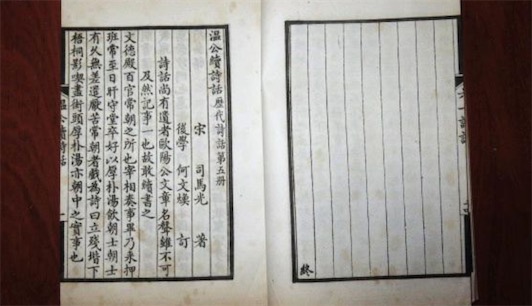 六一詩話
終
溫公續詩話 歷代詩話第五册
宋 司馬光 著
後學 何文煥 訂
詩話尚有遺者歐陽公文章名聲雖不可
及然記事一也故敢續書之
文德殿百官常朝之所也宰相奏事畢乃來押
班常至日旰守堂卒好以厚朴湯飲朝士朝士
有久無差遣厭苦常朝者戲為詩曰立殘堦下
梧桐影喫盡街頭厚朴湯亦朝中之實事也
溫公續詩話 一